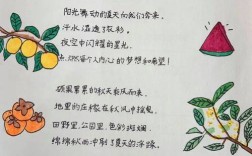 阳光舞动的夏天向我们奔来,
汗水湿透了衣衫。
夜空中闪耀的星光
点燃每个人心中的梦想和希望!
硕果累累的秋天乘风而来,
地里的庄稼在秋风中摇曳
田野里,公园里,色彩斑斓,
绵绵秋雨冲刷了夏天的浮躁。